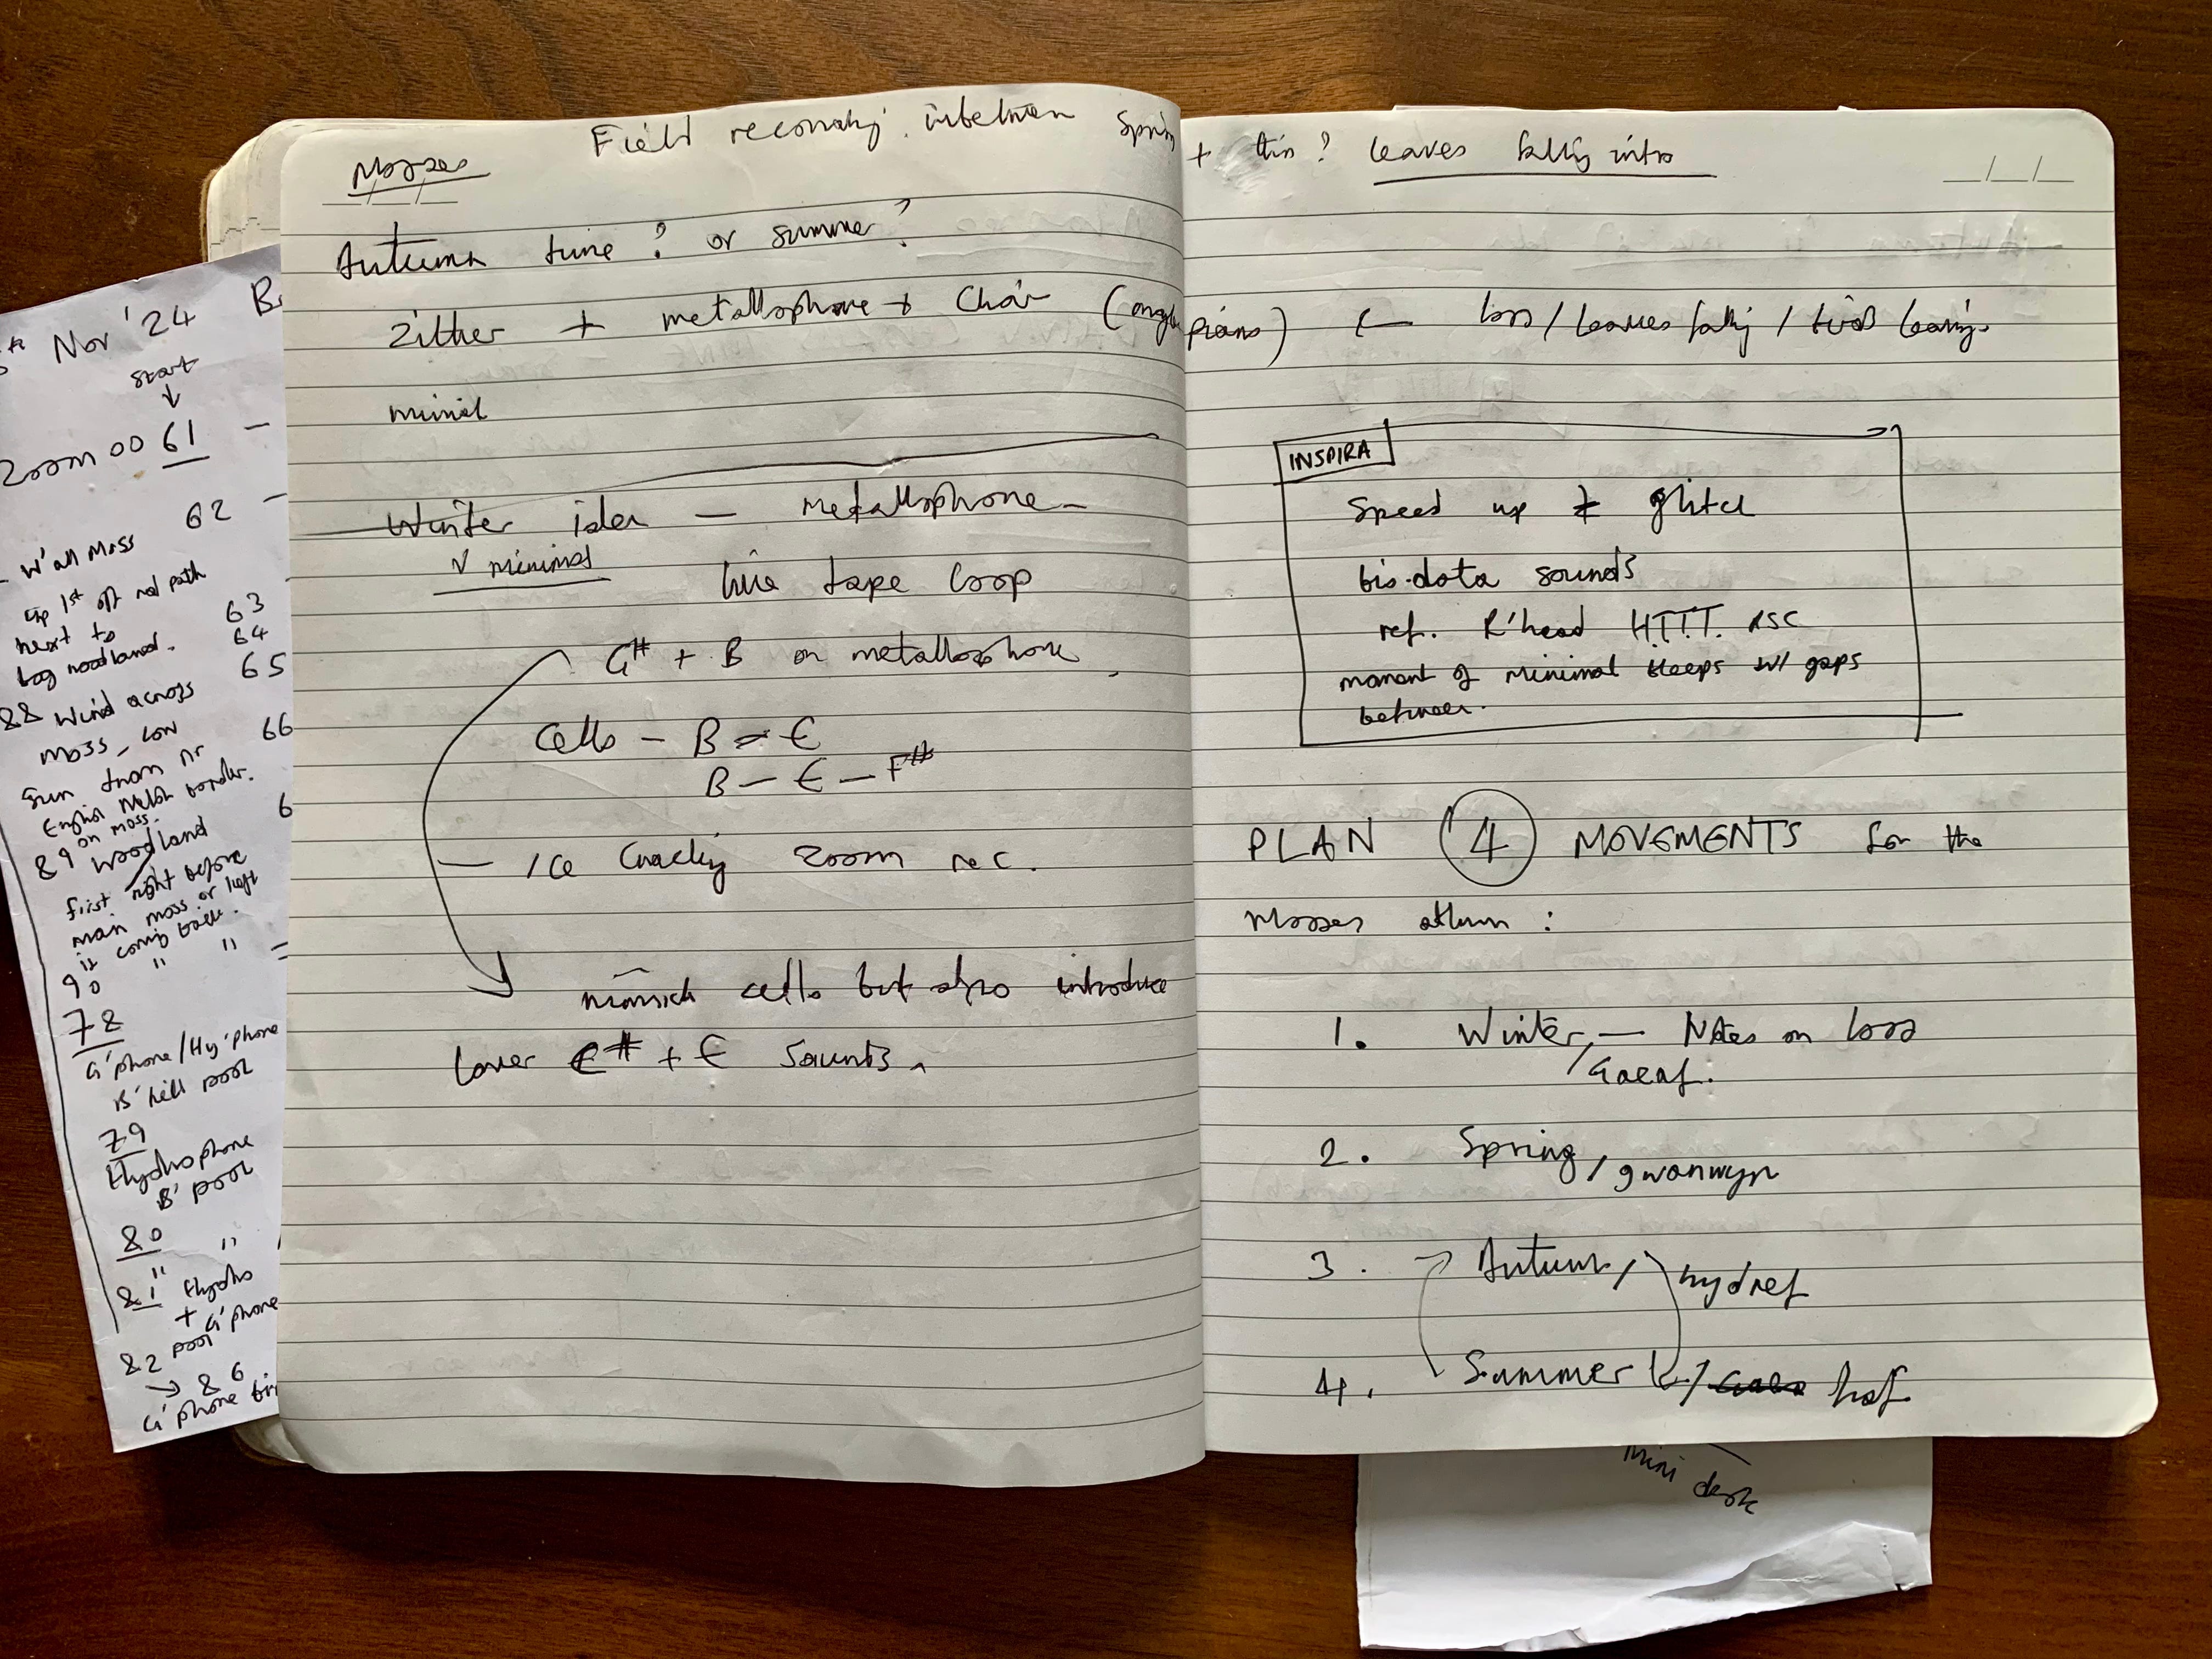 Nov '24 B
start
↓
Zoom 00 61 –
62 –
W'all Moss
up 1st off red path
next to
log woodland.
63
64
65
88 Wind across
moss – low
66
Gun from nr
English Welsh border.
on moss.
89 woodland
first right before
main moss or left
if coming back.
90 " "
78
G'phone/Hy'phone
B' hill pool
79
Hydrophone
B' pool
80 "
81 " Hydro
+ G'phone
82 pool
→ 86
G'phone
Mosses
Field recording inbetween Spring + this? leaves falling intro
Autumn tune? or summer?
Zither + metallophone + Choir ( piano) ← loss / leaves falling / birds leaving.
Winter idea – metallophone –
v minimal
live tape loop
G# + B on metallophone
Cello – B – E
B – E – F#
– Ice Cracking Zoom rec.
mimick cello but also introduce
lower C# + E sounds.
__/__/__
INSPIRA
Speed up + glitch
bio-data sounds
ref. R'head HTTT.
moment of minimal bleeps w/ gaps
between.
PLAN 4 MOVEMENTS for the
Mosses album:
1. Winter, – Notes on loss
/Gaeaf.
2. Spring, /gwanwyn
3. Autumn, / hydref
4. Summer / haf
mini desk